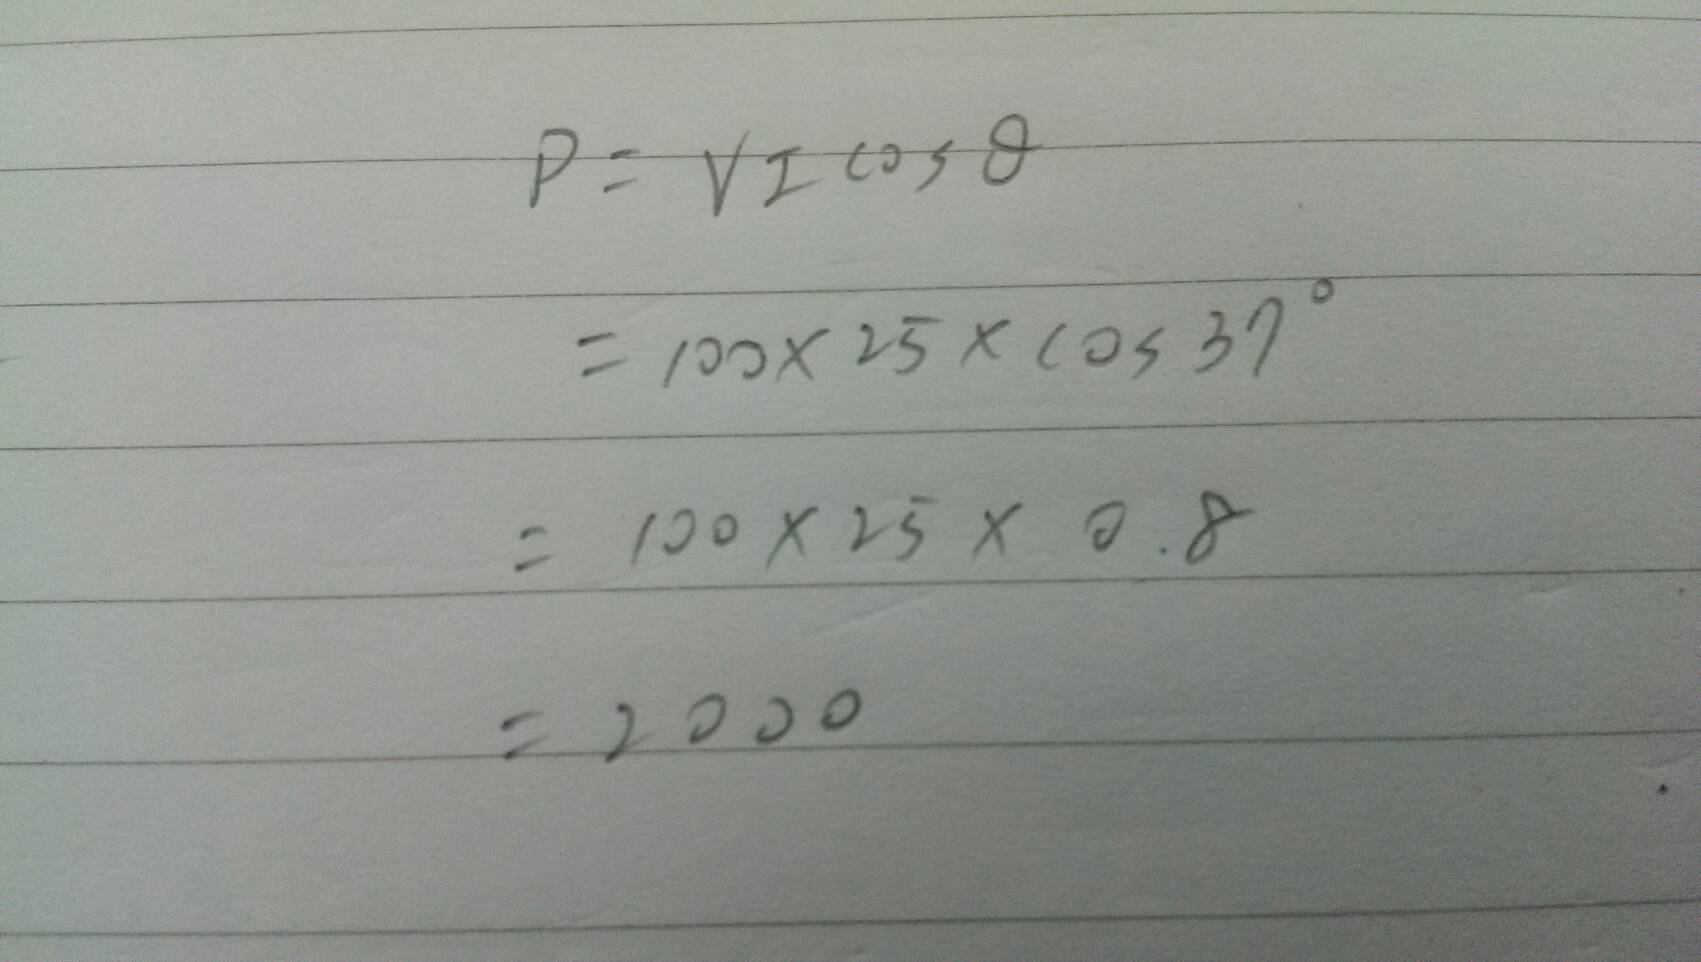 P = VI cos θ
= 100 × 25 × cos 37°
= 100 × 25 × 0.8
= 2000